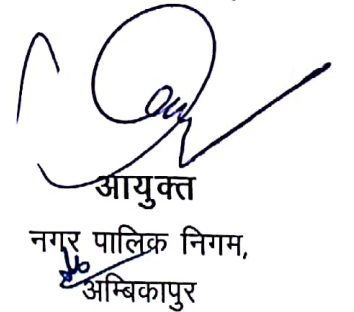 आयुक्त
नगर पालिक निगम,
अम्बिकापुर